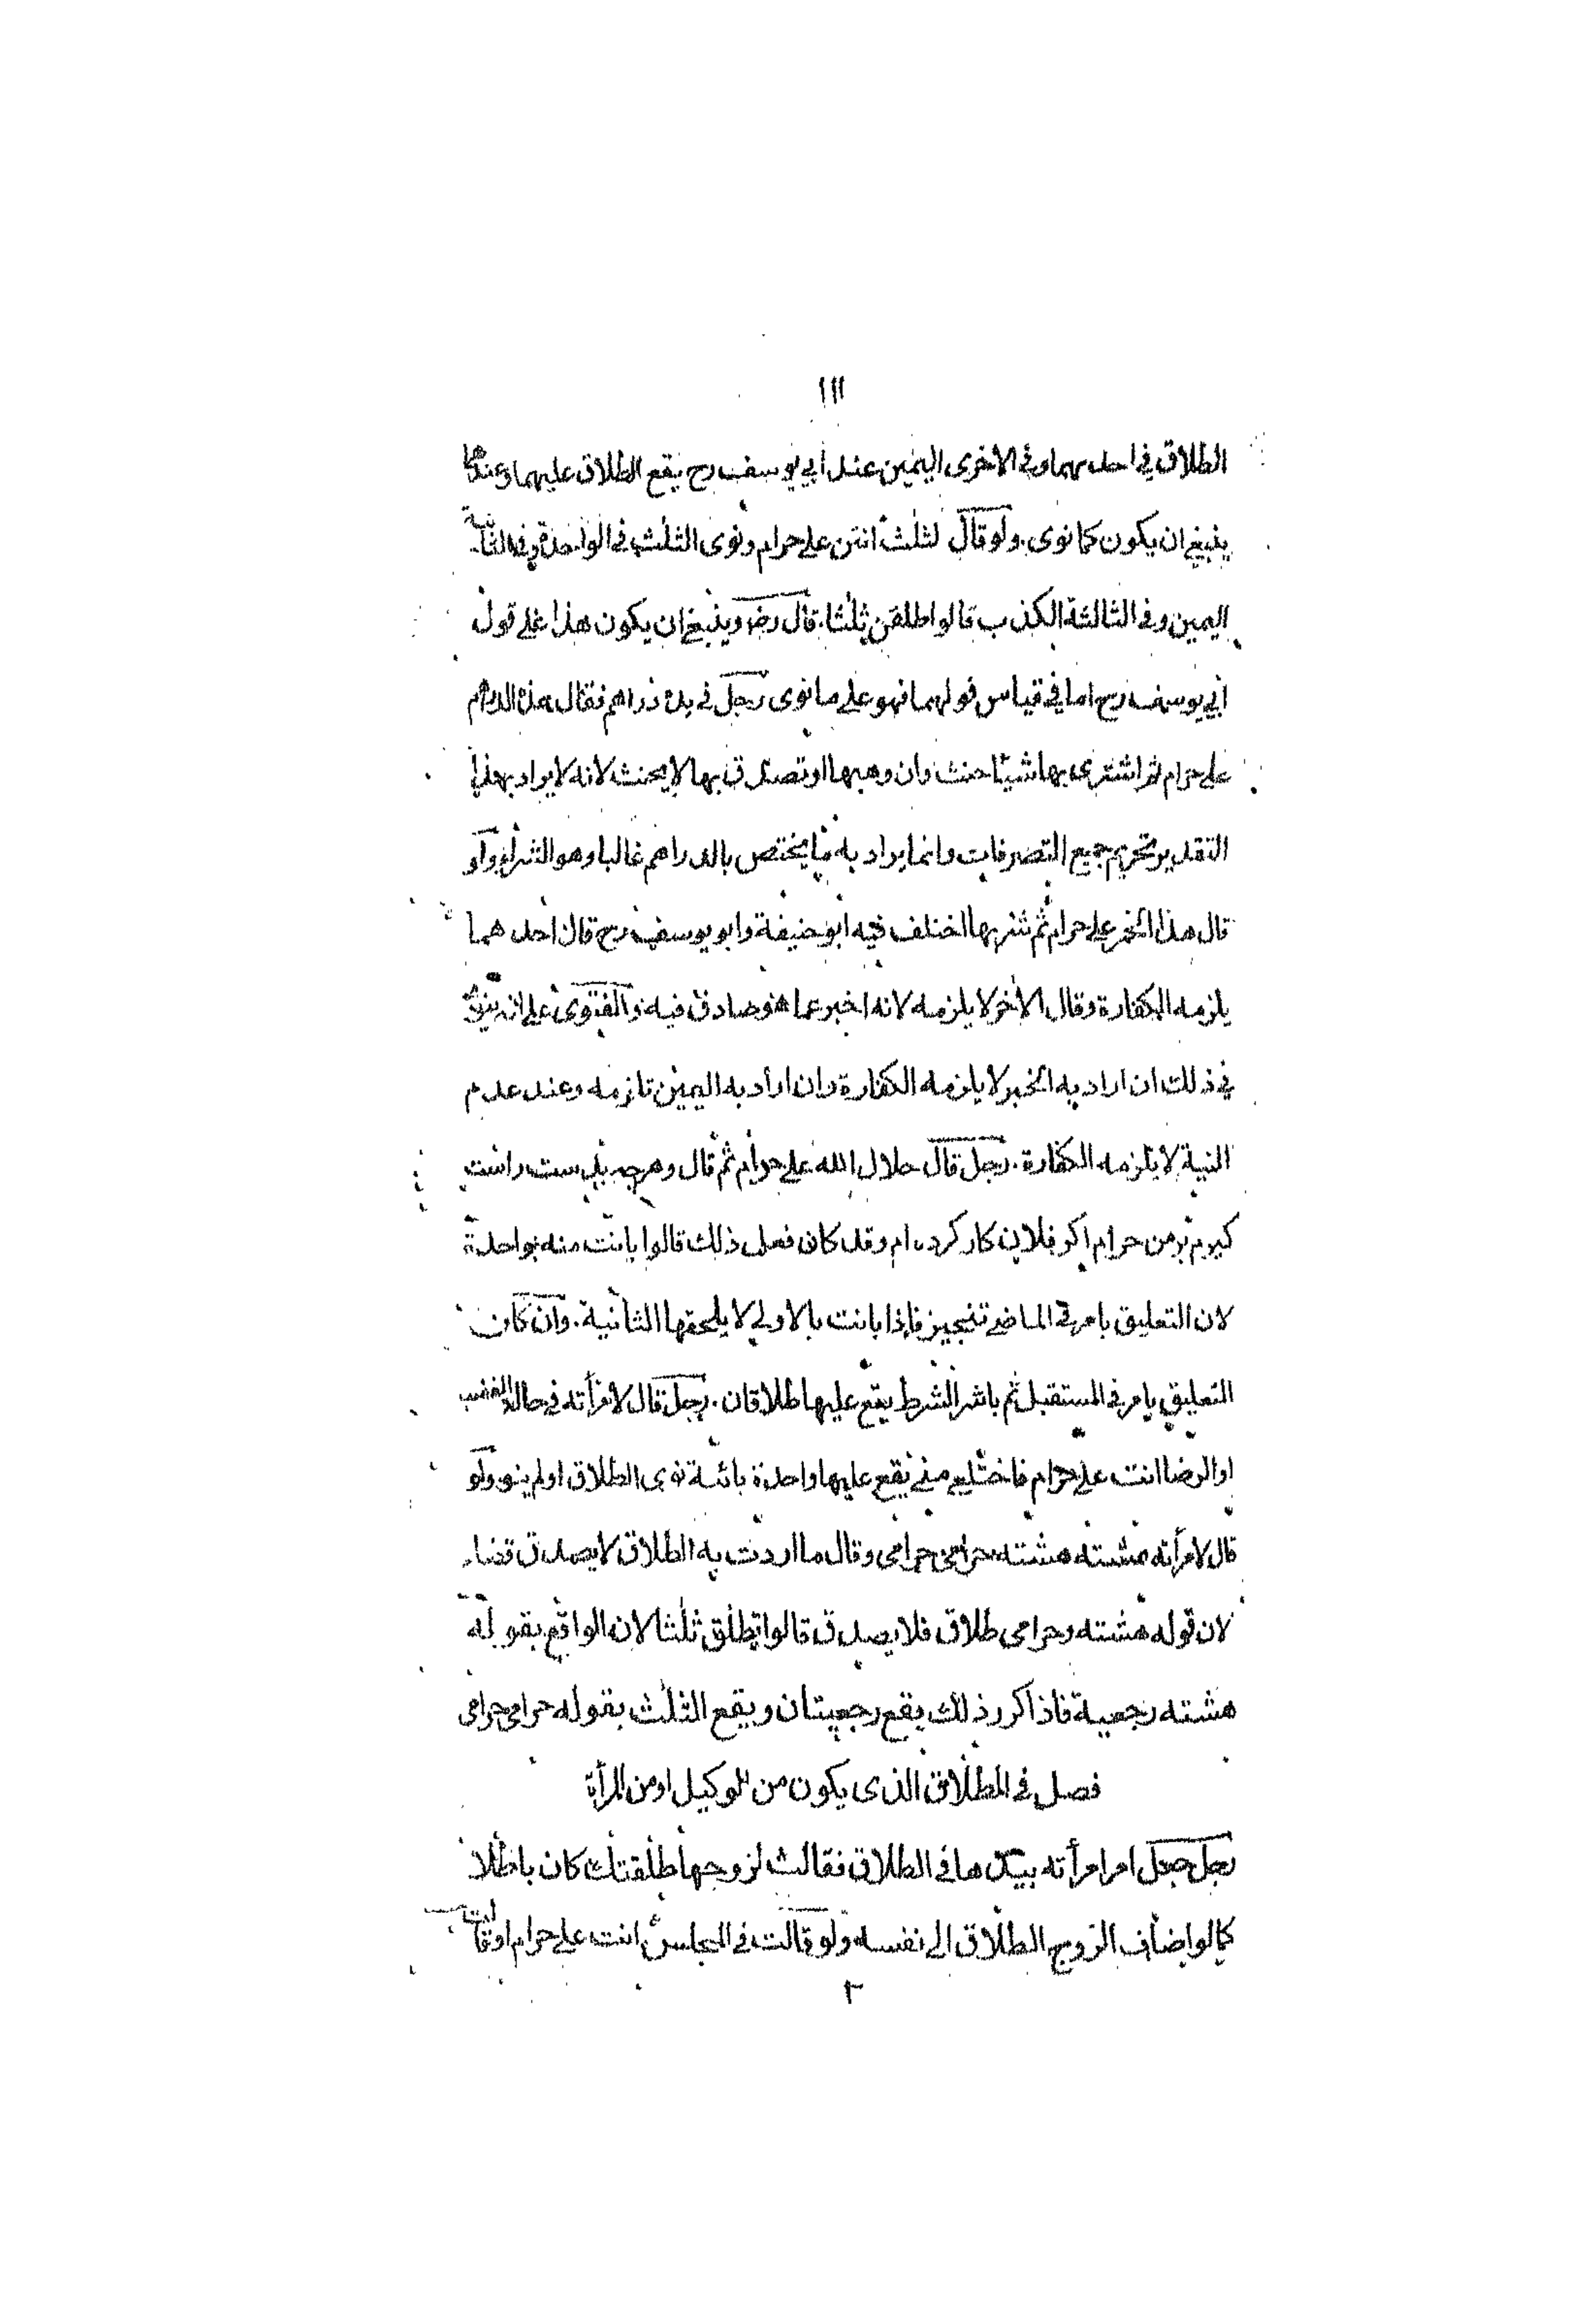 ١١١
الطلاق في احدىهما وفي الاخرى اليمين عند ابي يوسف رح يقع الطلاق عليهما وعندهما
ينبغي ان يكون كما نوى . ولو قال لثلث انتن علي حرام ونوى الثلث في الواحدة وفي الثانية
اليمين وفي الثالثة الكذب قالوا طلقن ثلثا . قال رضـ وينبغي ان يكون هذا على قول
ابي يوسف رح اما في قياس قولهما فهو على ما نوى رجل في يده دراهم فقال هذه الدراهم
علي حرام ثم اشترى بها شيئا حنث وان وهبها او تصدق بها لا يحنث لانه لا يراد بهذا
التقدير تحريم جميع التصرفات وانما يراد به ما يختص بالدراهم غالبا وهو الشراء ولو
قال هذا الخمر علي حرام ثم شربها اختلف فيه ابو حنيفة وابو يوسف رح قال احدهما
يلزمه الكفارة وقال الاخر لا يلزمه لانه اخبر عما هو صادق فيه والفتوى على انه ينوى
في ذلك ان اراد به الخبر لا يلزمه الكفارة وان اراد به اليمين تلزمه وعند عدم
النية لا يلزمه الكفارة . رجل قال حلال الله علي حرام ثم قال وهرچه بدست راست
كيرم بر من حرام اكر فلان كار كرده ام وقد كان فعل ذلك قالوا بانت منه بواحدة
لان التعليق بامر في الماضي تنجيز فاذا بانت بالاولى لا يلحقها الثانية . وان كان
التعليق بامر في المستقبل ثم باشر الشرط يقع عليها طلاقان . رجل قال لامرأته في حالة الغضب
او الرضا انت علي حرام فاختلعي مني يقع عليها واحدة بائنة نوى الطلاق او لم ينو ولو
قال لامرأته هشته هشته حرامى حرامى وقال ما اردت به الطلاق لا يصدق قضاء
لان قوله هشته وحرامى طلاق فلا يصدق قالوا تطلق ثلثا لان الواقع بقوله
هشته رجعية فاذا كرر ذلك يقع رجعيتان ويقع الثلث بقوله حرامى حرامى
فصل في الطلاق الذى يكون من الوكيل او من المرأة
رجل جعل امر امرأته بيدها في الطلاق فقالت لزوجها طلقتك كان باطلا
كما لو اضاف الزوج الطلاق الى نفسه ولو قالت في المجلس انت علي حرام او قالت